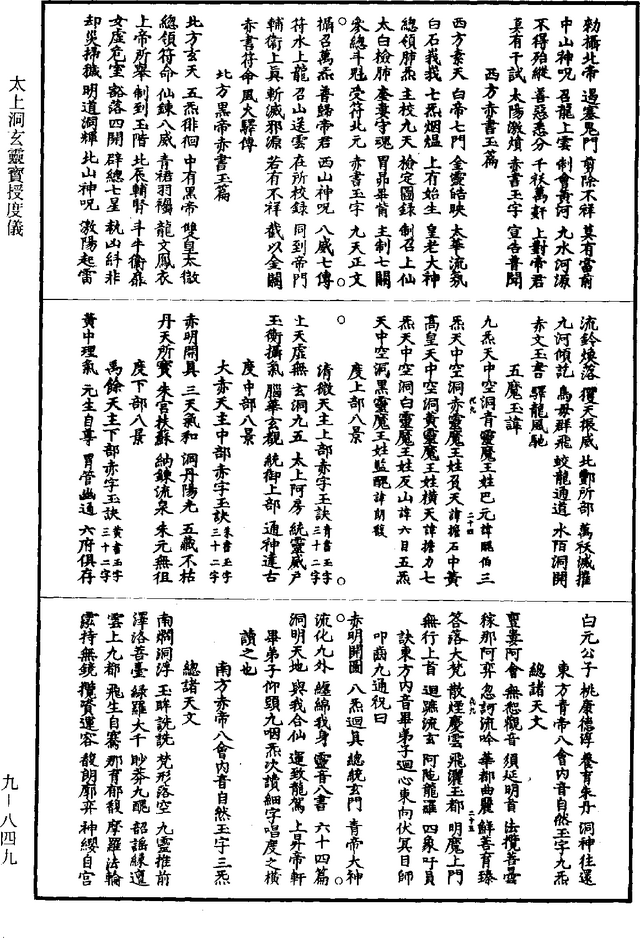 勑攝北帝 遏塞鬼門 剪除不祥 莫有當前
中山神呪 召龍上雲 制會黃河 九水河源
不得殆縱 善惡悉分 千祅萬姧 上對帝君
莫有干試 太陽激憤 赤書玉字 宣告普聞
西方赤書玉篇
西方素天 白帝七門 金靈皓映 太華流氛
白石峩峩 七炁烟熅 上有始生 皇老大神
總領肺炁 主校九天 檢定圖錄 制召上仙
太白檢肺 奎婁守魂 胃昴畢觜 主制七關
參總斗魁 受符北元 赤書玉字 九天正文
攝召萬炁 普歸帝君 西山神呪 八威七傳
符水上龍 召山送雲 在所校錄 同到帝門
輔衛上真 斬滅邪源 若有不祥 截以金關
赤書符命 風火驛傳
北方黑帝赤書玉篇
北方玄天 五炁徘徊 中有黑帝 雙皇太微
總領符命 仙鍊八威 青裙羽襡 龍文鳳衣
上帝所舉 制到玉階 北辰輔腎 斗牛衛扉
女虛危室 豁落四開 辟總七星 執凶糾非
却災掃穢 明道洞輝 北山神呪 激陽起雷
流鈴煥落 玃天振威 北酆所部 萬祅滅摧
九河傾訖 鳥母群飛 蛟龍通道 水陌洞開
赤文玉書 驛龍風馳
五魔玉諱
九炁天中空洞青靈魔王姓巴元諱醜伯三
炁天中空洞赤靈魔王姓負天諱擔石中黃
高皇天中空洞黃靈魔王姓橫天諱擔力七
炁天中空洞白靈魔王姓反山諱六目五炁
天中空洞黑靈魔王姓監醜諱朗馥
度上部八景
清微天主上部赤字玉訣青書玉字三十二字
上天虛無 玄洞九五 太上阿房 統靈威尸
玉衡攝氣 腦華玄觀 統御上部 通神達古
度中部八景
大赤天主中部赤字玉訣朱書玉字三十二字
赤明開具 三天氣和 洞丹陽光 五藏不枯
丹天所寶 朱宮扶蘇 納鍊流泉 朱元無徂
度下部八景
禹餘天主下部赤字玉訣黃書玉字三十二字
黃中理氣 元生自尊 胃管幽通 六府俱存
白元公子 桃康德淳 養育朱丹 洞神往還
總諸天文
東方青帝八會內音自然玉字九炁
亶婁阿會 無惒觀音 須延明首 法攬菩曇
稼那阿弈 忽訶流吟 華都曲麗 鮮菩育臻
答落大梵 散煙慶雲 飛灑玉都 明魔上門
無行上首 迴蹠流玄 阿陁龍羅 四象吁員
訣東方內音畢弟子迴心東向伏冥目師
叩齒九通祝曰
赤明開圖 八炁迴真 總統玄門 青帝大神
流化九外 纏綿我身 靈音八書 六十四篇
洞明天地 與我合仙 運致龍駕 上昇帝軒
畢弟子仰頭九咽炁次讀細字唱度之橫
讀之也
南方赤帝八會內音自然玉字三炁
南爓洞浮 玉眸詵詵 梵形落空 九靈推前
澤洛菩臺 緑羅大千 眇莽九醜 韶謡緣邅
雲上九都 飛生自騫 那育郁馥 摩羅法輪
霐持無鏡 攬資運容 馥朗廓弈 神纓自宮
太上洞玄靈寶授度儀
九-八四九